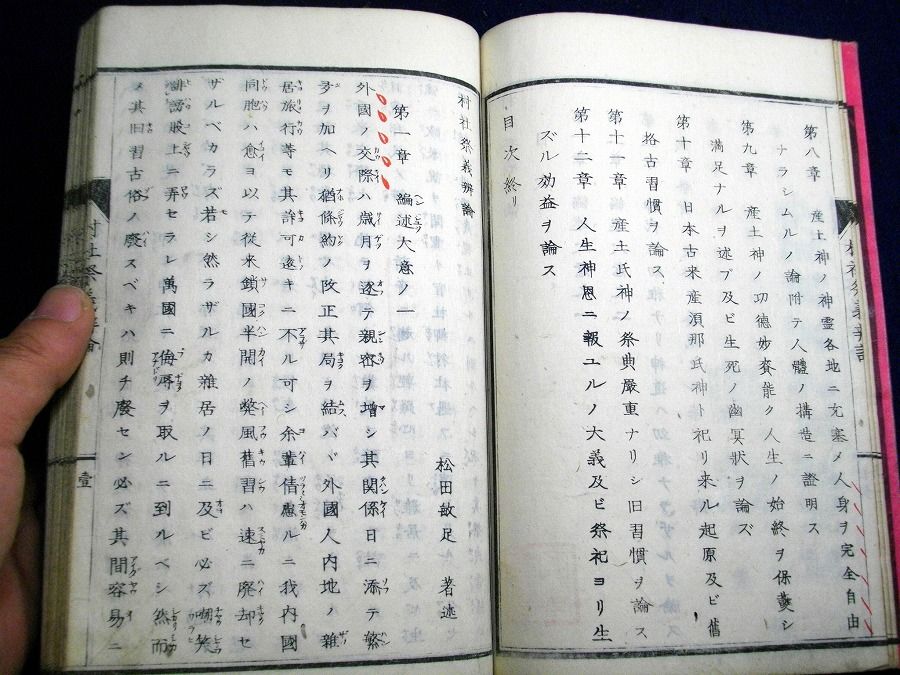 第八章　産土神ノ神霊各地ニ充塞メ人身ヲ完全自由
ナラシムルノ論附テ人體ノ構造ニ證明ス
第九章　産土神ノ功德妙資能ク人生ノ始終ヲ保護シ
満足ナルヲ述ブ及ビ生死ノ幽冥狀ヲ論ズ
第十章　日本古来産須那氏神ト祀リ来ル起原及ビ舊
格古習慣ヲ論ス
第十一章　産土氏神ノ祭典嚴重ナリシ旧習慣ヲ論ス
第十二章　人生神恩ニ報ユルノ大義及ビ祭祀ヨリ生
ズル効益ヲ論ス
目次終リ
村社祭義辨論
松田敏足　著述
第一章　編述大意ノ一
外國ノ交際ハ歳月ヲ逐テ親密ヲ增シ其関係日ニ添テ繁
多ヲ加ヘリ猶條約ノ改正其局ヲ結バヾ外國人内地ノ雜
居旅行等モ其許可遠キニ不アル可シ余輩倩慮ルニ我内國
同胞ハ愈ヨ以テ従来鎖國半開ノ弊風舊習ハ速ニ廃却セ
ザルベカラズ若シ然ラザルカ雜居ノ日ニ及ビ必ズ嘲笑
誹謗股上ニ弄セラレ萬國ニ侮辱ヲ取ルニ到ルベシ然而
メ其旧習古俗ノ廃スベキハ則チ廃セン必ズ其間容易ニ
壹